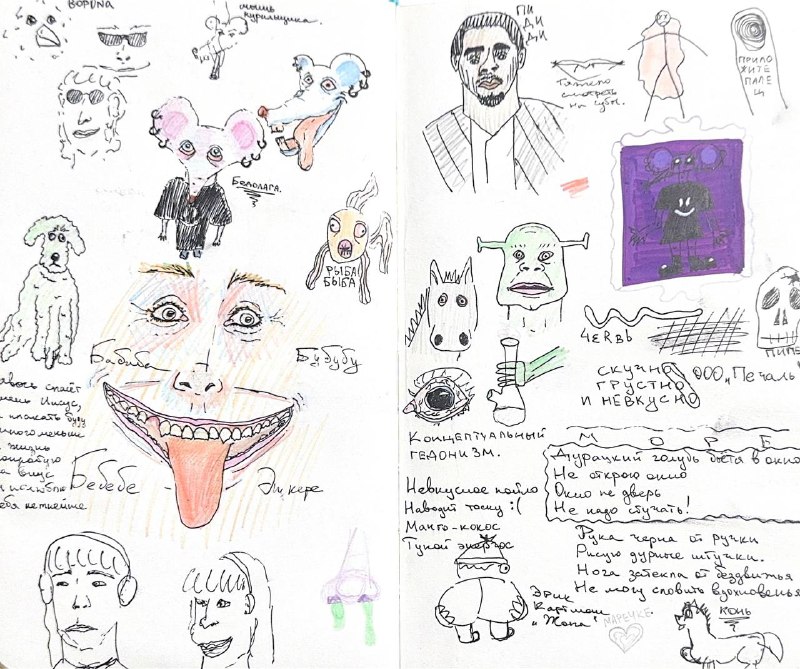 ВОРОNА
мышь
курильщика.
Белолага.
РЫБА
БЫБА
Бабиба
Бубубу
Бебебе
Эщкере
Иисус,
плакать буду
меньше
жизнь
ПИ
ДИ
ДИ
Тяжело
смотреть
на губы.
ПРИЛО
ЖИТЕ
ПАЛЕ
Ц
ЧЕRВЬ
СКУЧНО
ГРУСТНО
И НЕВКУСНО
ООО „Печаль"
КОНЦЕПТУАЛЬНЫЙ
ГЕДОНИЗМ.
Невкусное пойло
Наводит тоску :(
Манго-кокос
Тупой энергос
М О Р Е
Дурацкий голубь бьётся в окно
Не открою окно
Окно не дверь
Не надо стучать!
Рука черна от ручки
Рисую дурные штучки.
Нога затекла от бездвижья
Не могу словить вдохновенья
ЭРИК
Картман
„Жопа"
МАРЕЧКЕ
КОНЬ
?